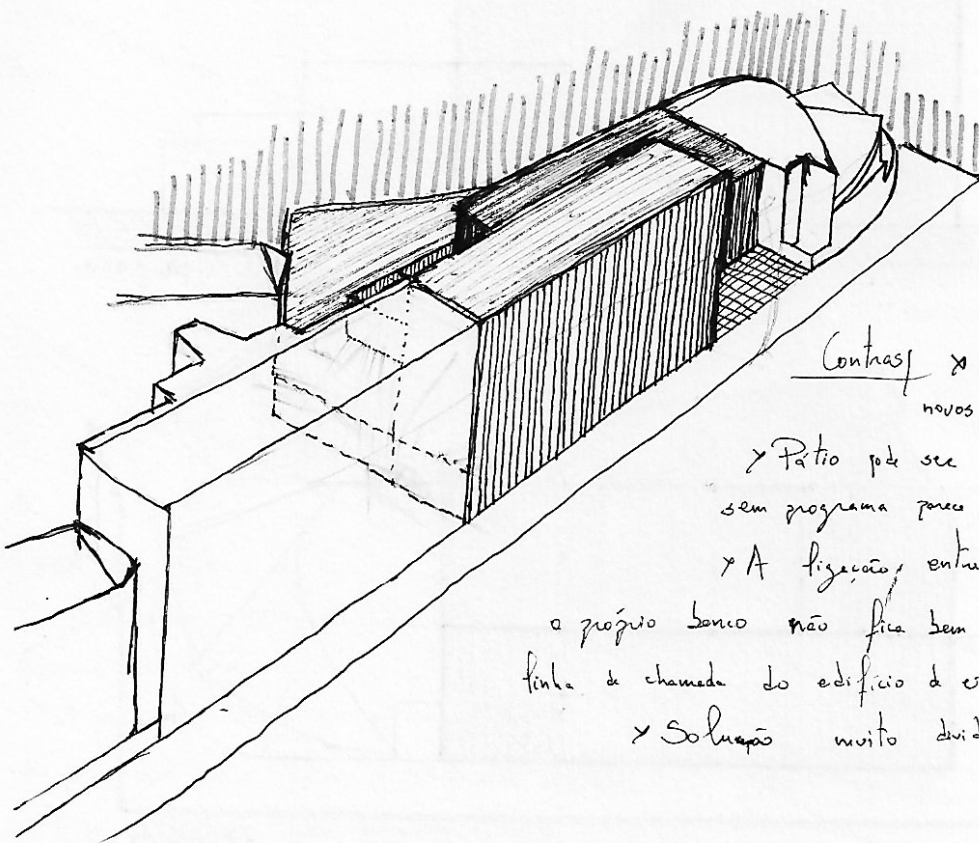 Contras x
novos
x Pátio pode ser
sem programa parece
x A ligação, entre
o próprio banco não fica bem
linha de chamada do edifício d
x Solução muito